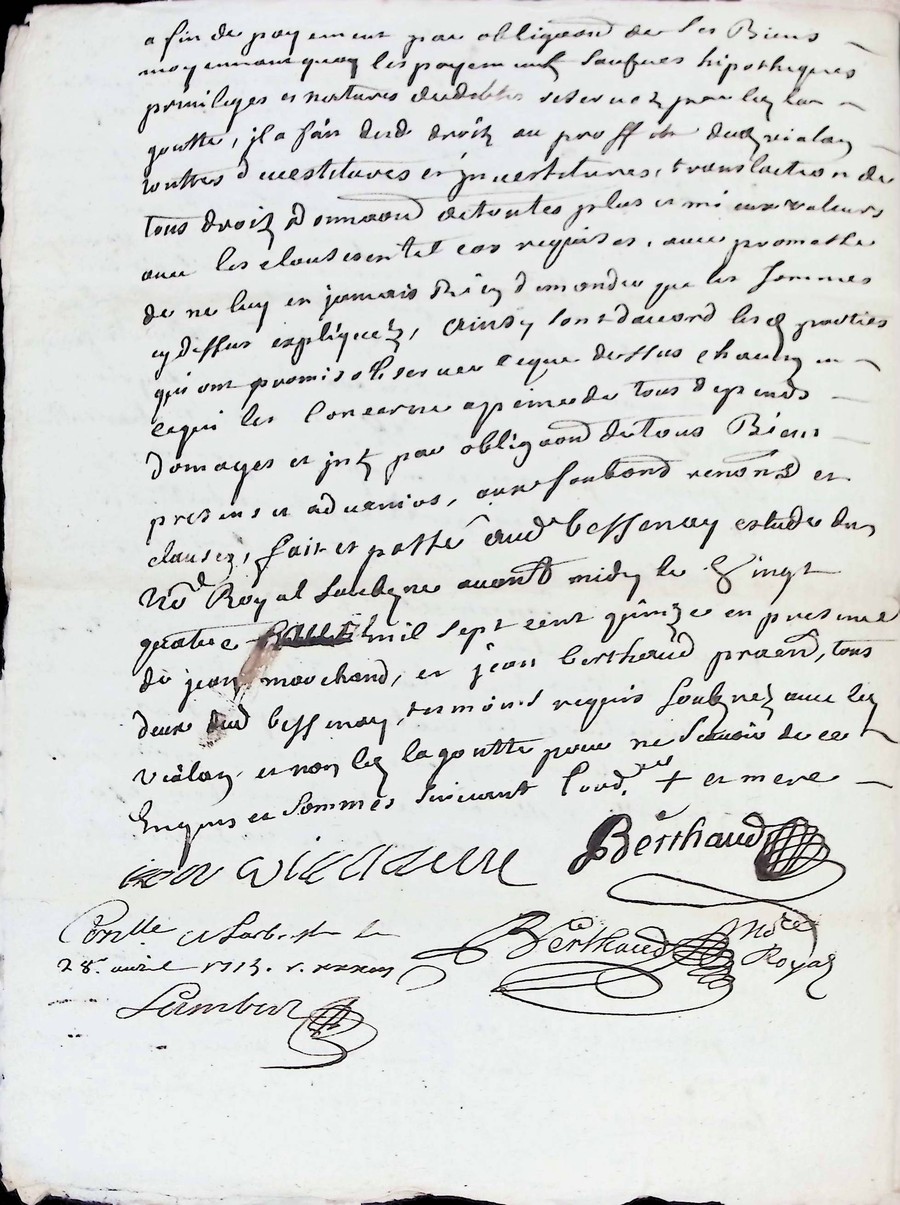 afin de payement par obligaond de ses Biens
moyennant quoy les payements saufues hipotheques
priuileges et natures dud reseruez par led la
goutte, il a fait dud droitz au proffit dud vialon
touttes deuestitures et jnuestitures, translaction de
tous droitz donnaond de toutes plus et mieux valeurs
auec les clauses en tel cas requises, auec promesse
de ne luy en jamais Rien demander que les sommes
cy dessus expliqueez, Ainsy sont dacord lesd parties
qui ont promis obseruer ceque dessus chacun en
cequi les concerne apeine de tous depends
domages et jntz par obligaond de tous Biens
presens et aduenirs, aux soubond renond et
clauses, fait et passé aud bessenay estude du
No.rd Royal soubzne auant midy le Vingt
quatre mil sept cent quinze en presence
de jean marchand, et jean berthaud praend, tous
deux dud bessenay, tesmoins requis soubznez auec led
vialon, et non led lagoutte pour ne sauoir de ce
Enquis et sommés suiuant lord.nce + et mere
Berthaud
Conlle a Larbresle le
Berthaud No.re
28. auril 1715. r. Royal
Lambert